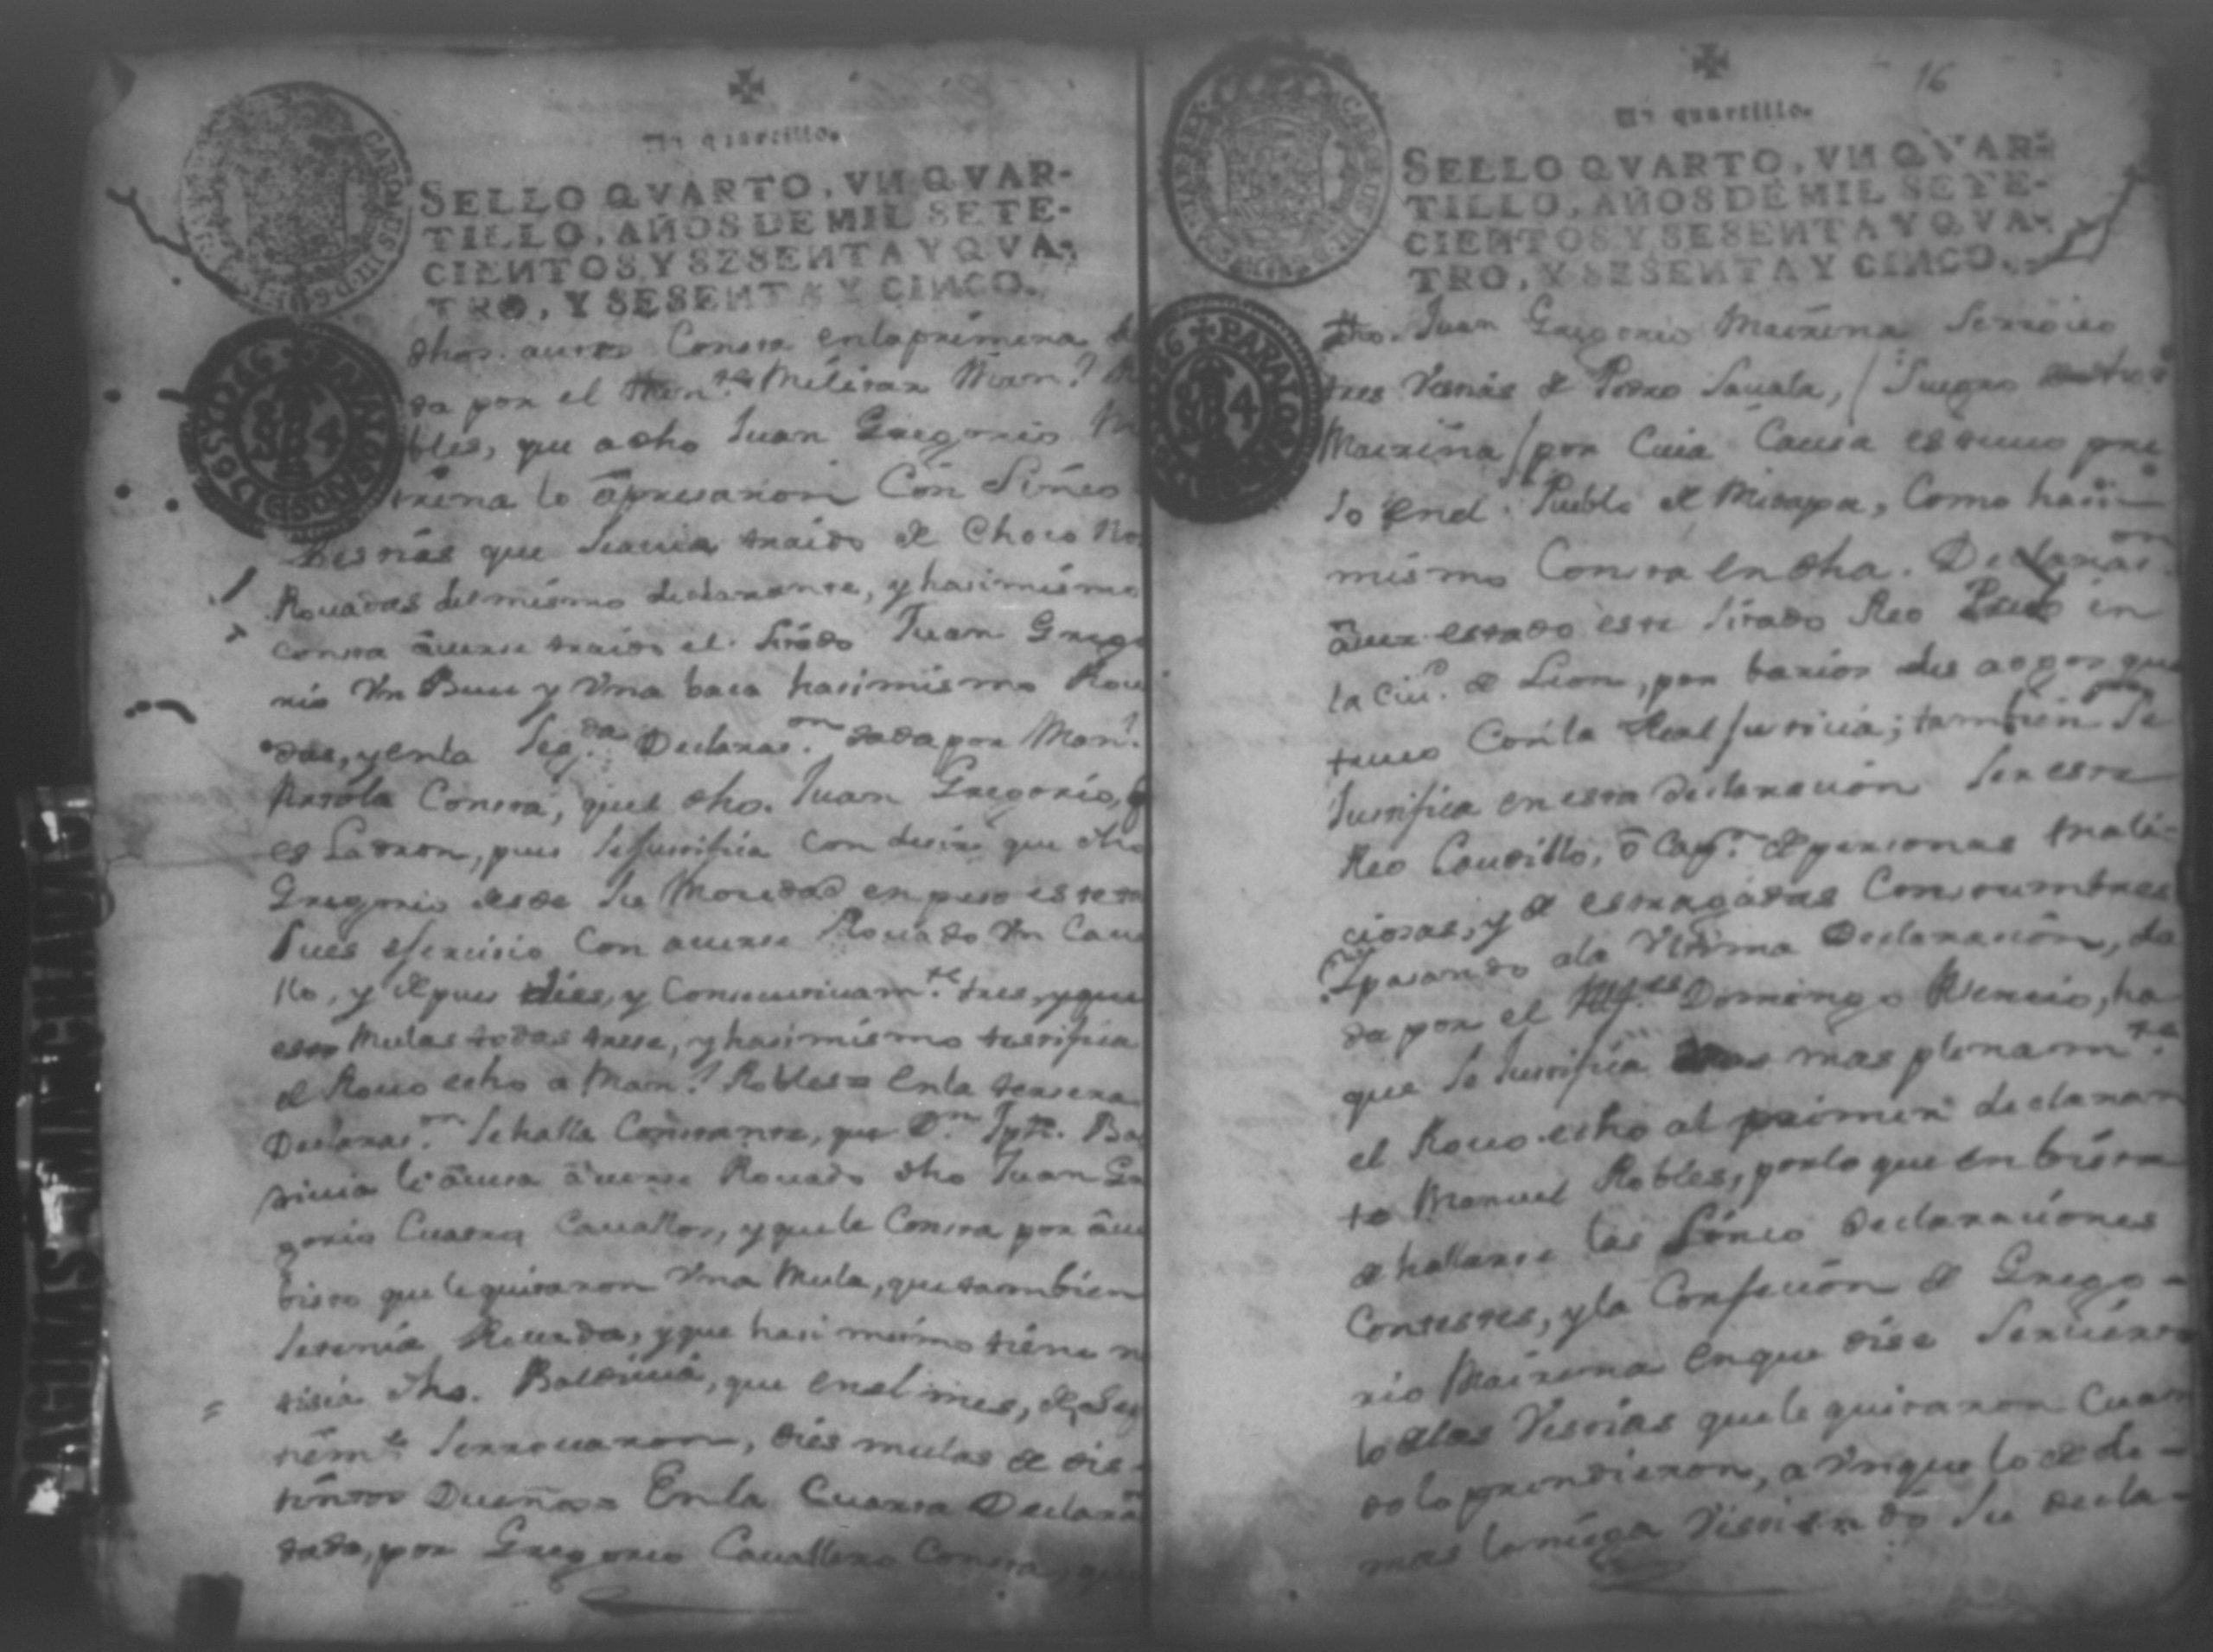 Un quartillo.
SELLO QVARTO, VN QVAR-
TILLO, AÑOS DE MIL SETE-
CIENTOS Y SESENTA Y QVA-
TRO, Y SESENTA Y CINCO.
dhos. autos Consta en la primera
da por el Then.te Militar Man.l
bles, que a dho Juan Gregorio
rena lo apresaron Con Sinco
bestias que
Rouadas del mismo declarante, y hasimismo
consta auerse traido el Sitado Juan Grego
rio Vn Buei y Vna baca hasimismo Roua
das, y en la Seg.da Declaras.on dada por Man.l
Consta, que dho. Juan Gregorio,
es Ladron, pues Se Justifica con desir que dho
Gregorio desde Su Mosedad enpeso este
pues ejersisio Con auerse Rouado Vn Caua
llo, y despues dies, y Consecutiuam.te tres, y que
estas Mulas todas trese, y hasimismo testifica
el Rouo echo a Man.l Robles= En la tersera
Declaras.on Se halla Constante, que D.n Jph. Bal
diuia le acusa auerse Rouado dho Juan Gre
gorio Cuatro Cauallos, y que le Consta por auer
bisto que le quitaron Vna Mula, que tambien
Se tenia Rouada, y que hasi mismo tiene no
tisia dho. Baldiuia, que en el mes, de Sep
tiem.e Se rrouaron, dies mulas de dis-
tintos Dueños= En la Cuarta Declaras.on
dada, por Gregorio Cauallero Consta, que
16
Un quartillo.
SELLO QVARTO, VN QVAR-
TILLO, AÑOS DE MIL SETE-
CIENTOS Y SESENTA Y QVA-
TRO, Y SESENTA Y CINCO.
dho. Juan Gregorio Mairena Se rrouo
tres Vestias de Pedro Sauala, (Suegro
Mairena) por Cuia Causa estuuo pre
so en el Pueblo de Mitapa, Como hasi-
mismo Consta en dha. Declaras.on
auer estado este Sitado Reo Preso en
la Ciu.d de Leon, por barios desacatos que
tuuo Con la Real Justicia; tambien Se
Justifica en esta declaracion Ser este
Reo Caudillo, o Cap.n de personas mali-
ciosas, y de estragadas Constumbres
Y pasando a la Vltima Declaracion, da
da por el Domingo Asencio, ha
que Se Justifica mas plenam.te
el Rouo echo al primer declaran
te Manuel Robles, por lo que en bista
de hallarse las Sinco declaraciones
Contestes, y la Confecion de Grego-
rio Mairena en que dise Ser cierto
lo de las Vestias que le quitaron Cuan
do lo prendieron, a Vnque lo de de-
mas lo niega Vistiendo Su decla-